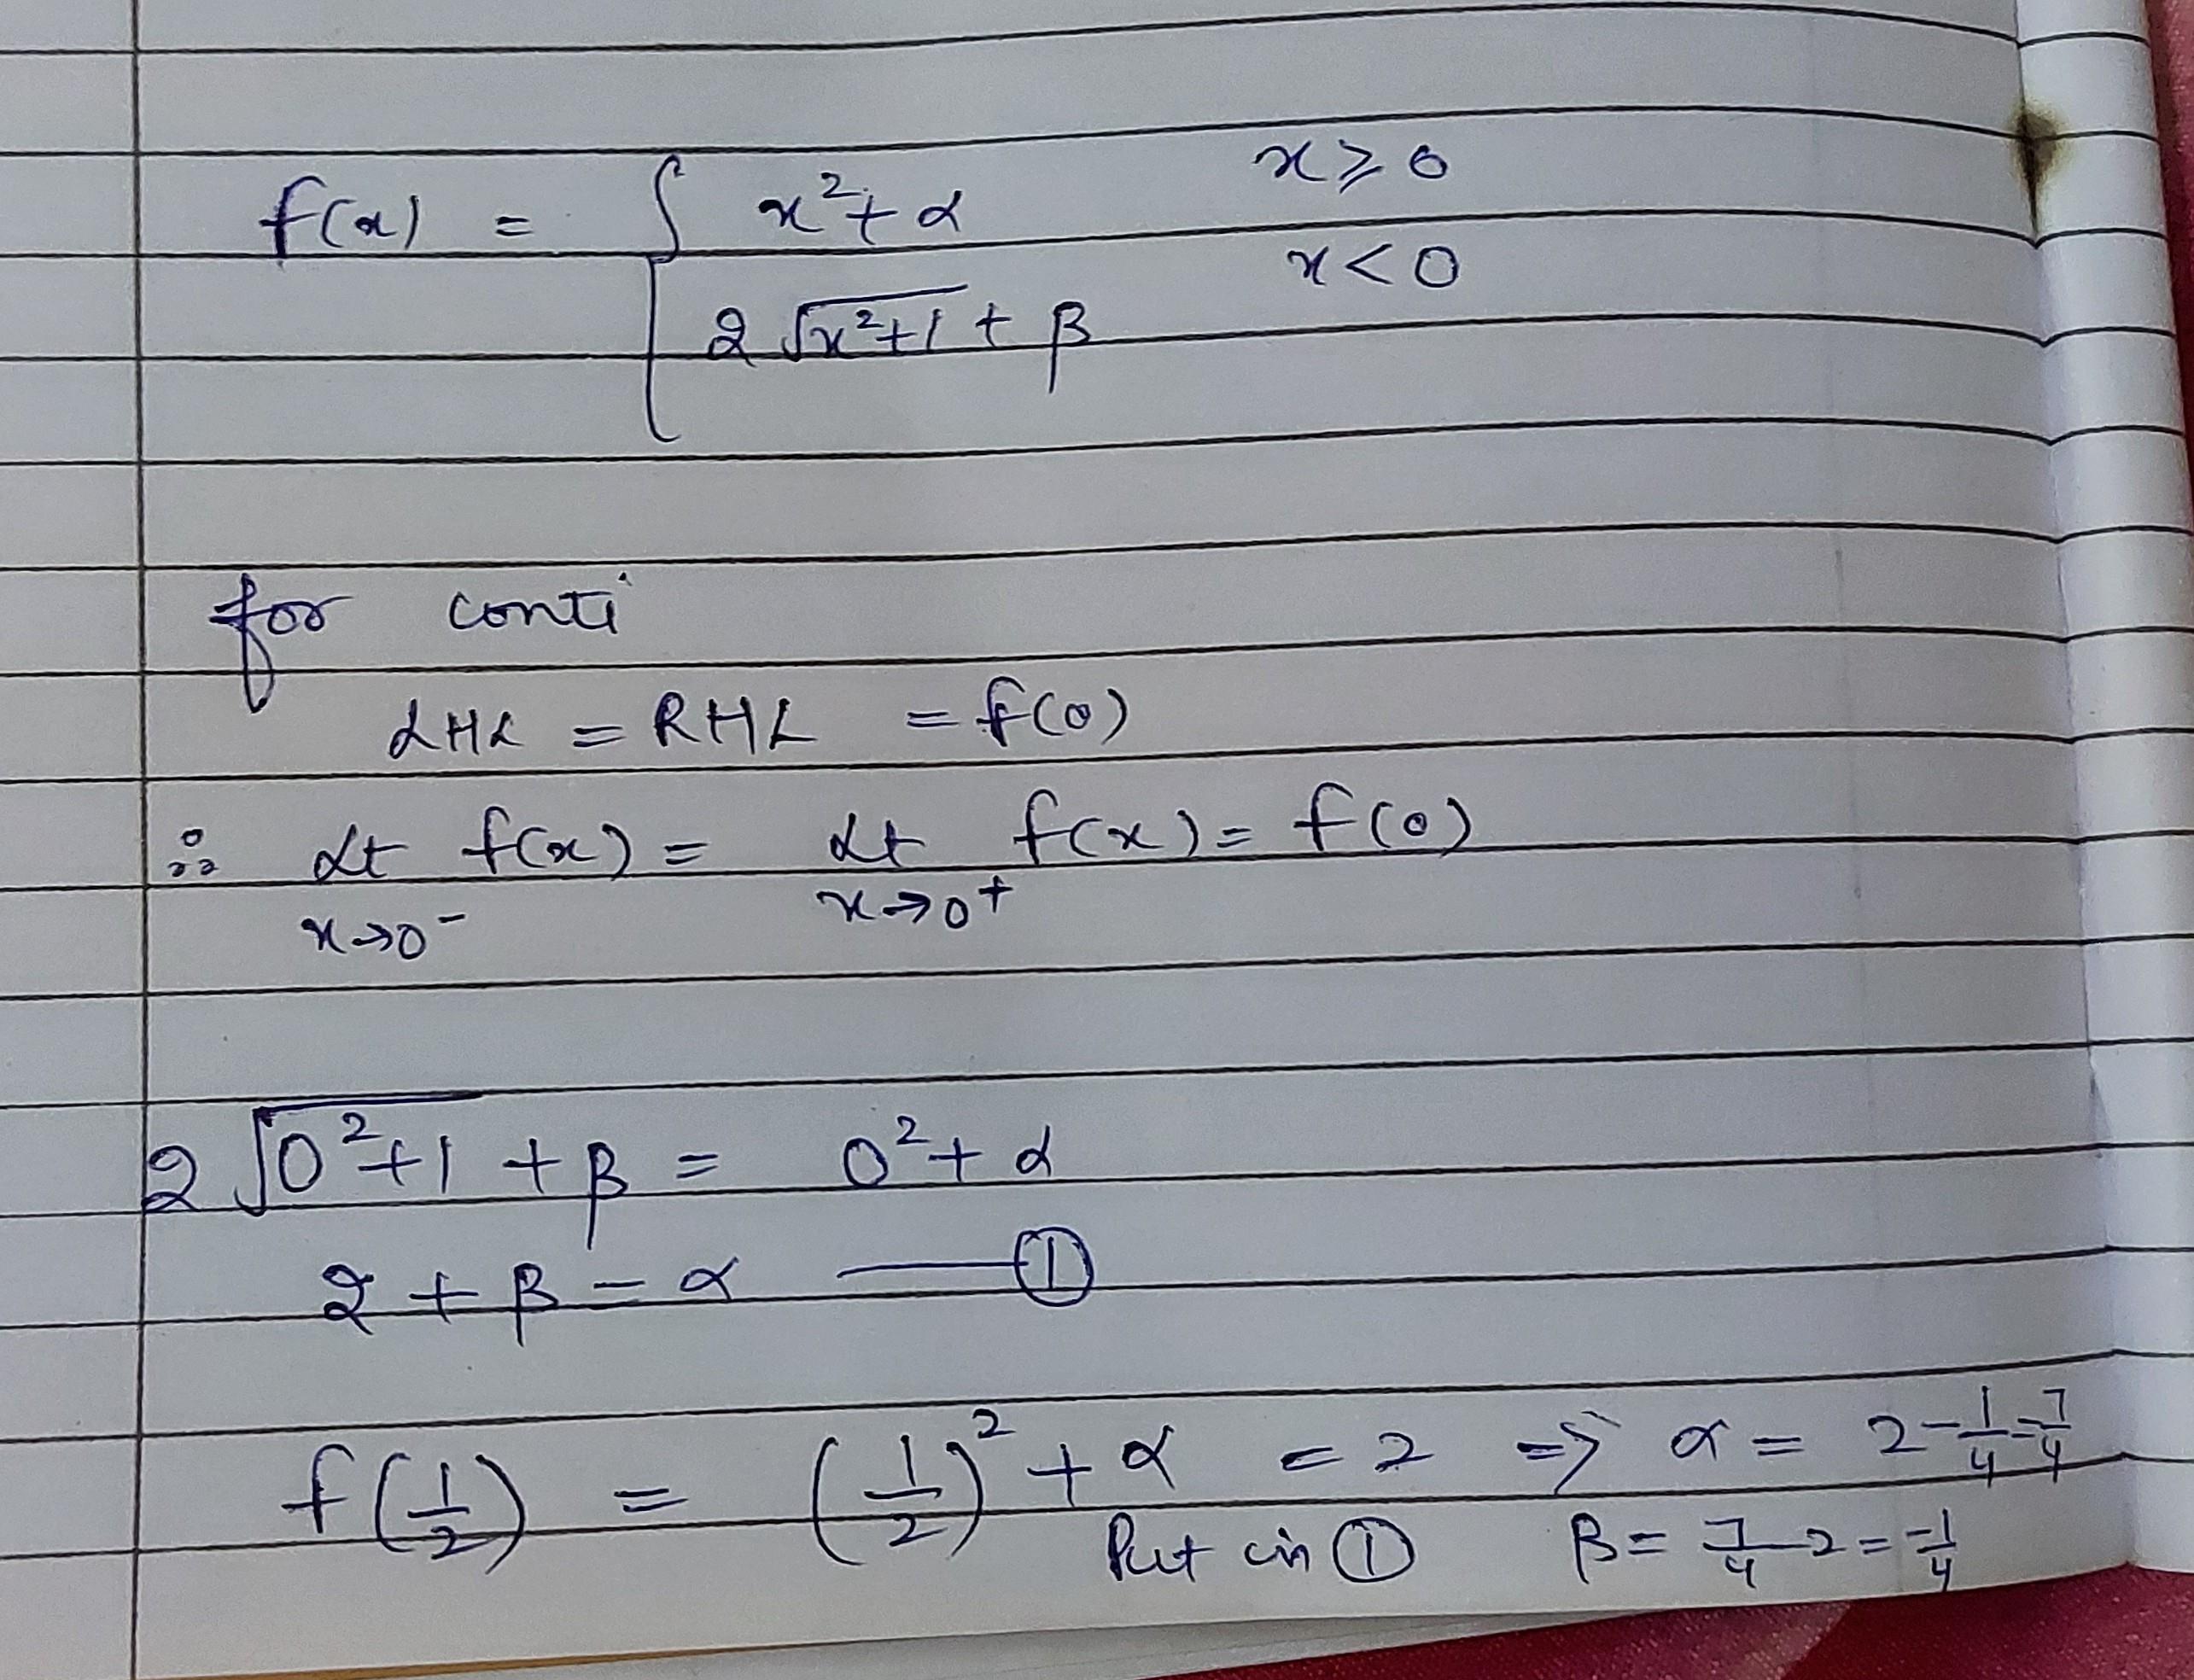 f(x) = { x²+α x ⩾ 0
2 √x²+1 + β x < 0
for conti
LHL = RHL = f(0)
∴ Lt f(x) = Lt f(x) = f(0)
x→0⁻ x→0⁺
2 √0²+1 + β = 0²+ α
2 + β = α —— ①
f(1/2) = (1/2)² + α = 2 => α = 2 - 1/4 = 7/4
Put in ① β = 7/4 - 2 = -1/4